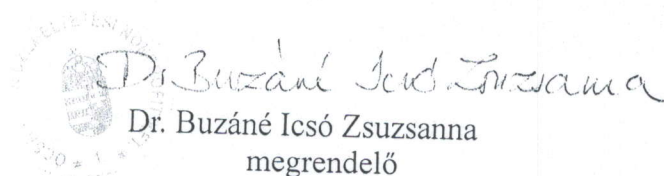 Dr Buzáné Icsó Zsuzsanna
Dr. Buzáné Icsó Zsuzsanna
megrendelő